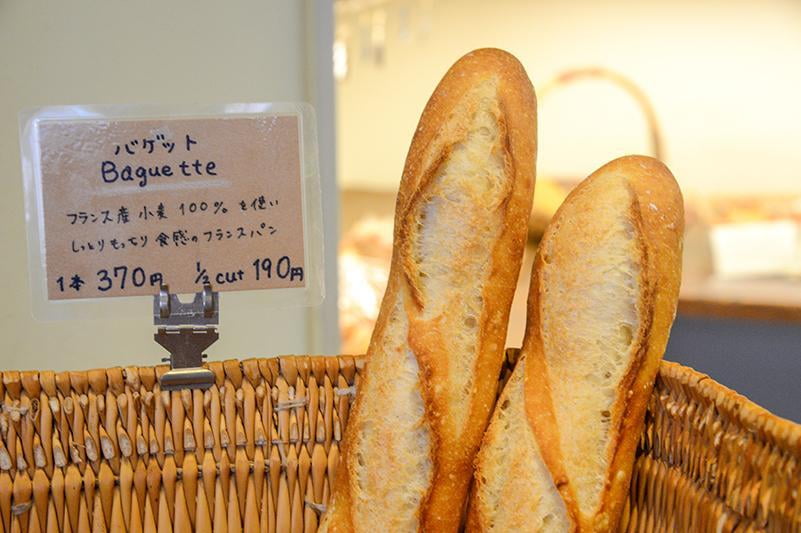 バゲット
Baguette
フランス産 小麦 100% を使い
しっとりもっちり 食感のフランスパン
1本 370円 1/2 cut 190円